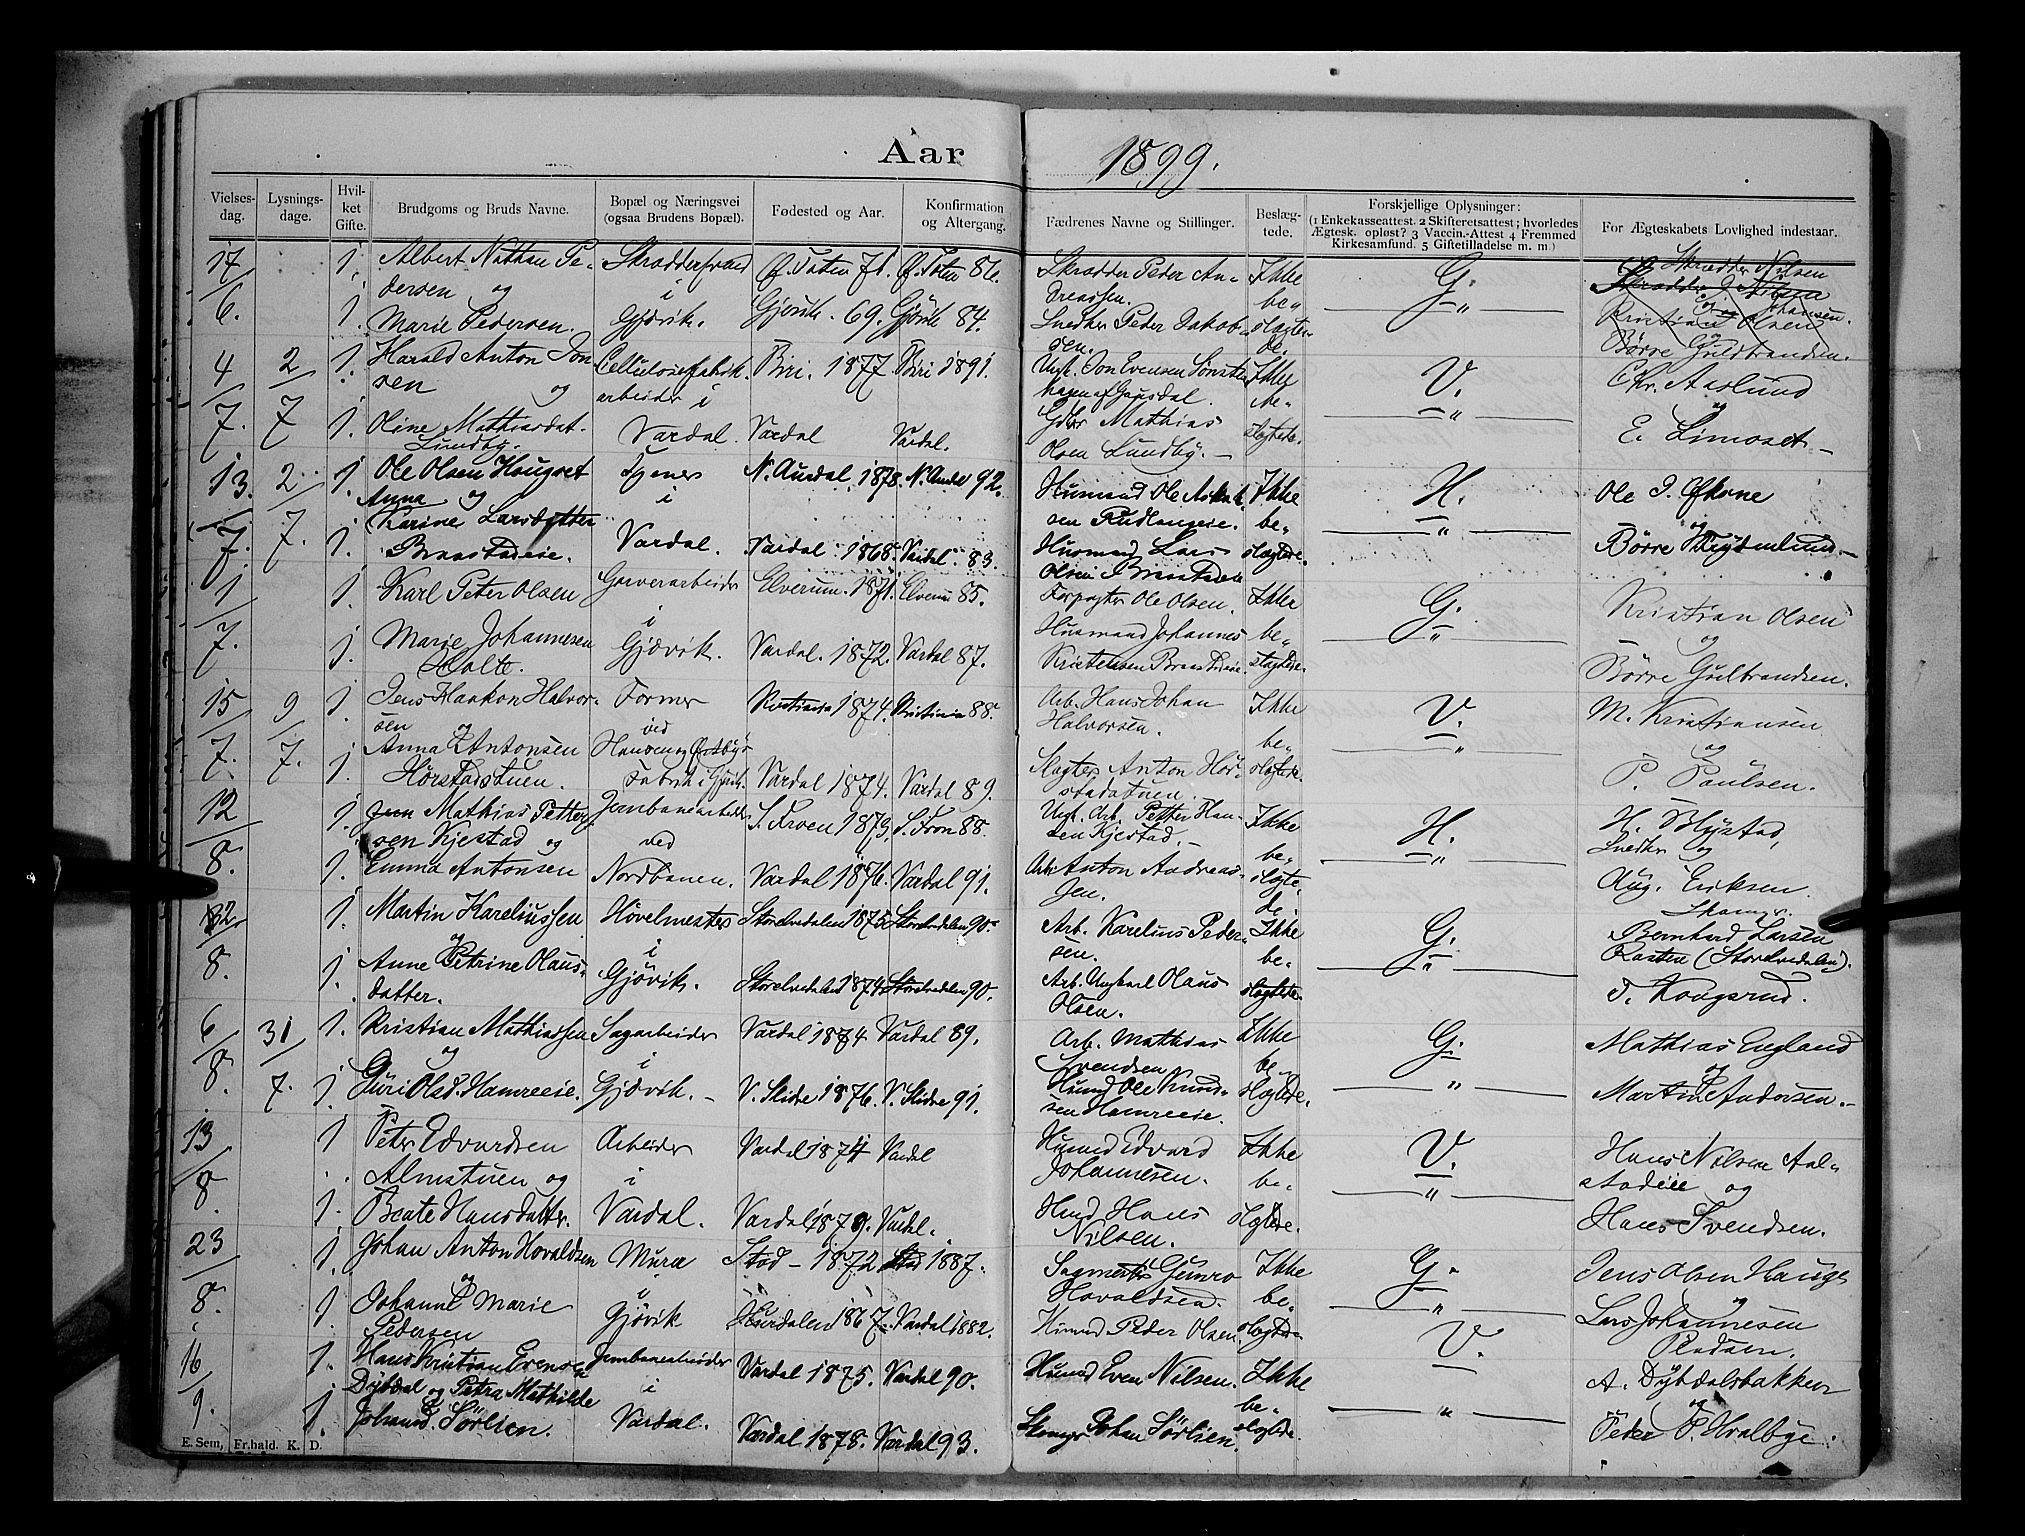 Aar 1899.
Vielses-dag. Lysnings-dage. Hvilket Gifte. Brudgoms og Bruds Navne. Bopæl og Næringsvei (ogsaa Brudens Bopæl). Fødested og Aar. Konfirmation og Altergang. Fædrenes Navne og Stillinger. Beslæg-tede. Forskjellige Oplysninger: (1 Enkekasseattest. 2 Skifteretsattest; hvorledes Ægtesk. opløst? 3 Vaccin.-Attest 4 Fremmed Kirkesamfund. 5 Giftetilladelse m. m.) For Ægteskabets Lovlighed indestaar.
17/6. 1. Albert Nathan Pe-dersen og Skrædder i Gjøvik. Ø. Toten 71. Ø. Toten 86. Skrædder Peder An-dreassen. Ikke be- G. Skrædder Nilsen
1. Marie Pedersen. Gjøvik. 69. Gjøvik 84. Snedker Peder Jakob-sen. slægte-de. — " — og Johansen. Kristian Olsen Børre Guldbrandsen.
4/7. 2/7 1. Harald Anton Jon-sen og Cellulosefabrik-arbeider i Biri. 1877. Biri 1891. Jon Evensen Gausdal. Ikke be- V. Chr. Aaslund og
1. Oline Mathiasdat. Lundby. Vardal. Vardal Vardal. Mathias Olsen Lundby. — slægtede. — " — E. Limoset —
13./7. 2/7. 1. Ole Olsen Haugset og Tjener i N. Aurdal. 1878. N. Aurdal 92. Husmand Ole Ikke be- H. Ole J. Økone og
1. Anna Karine Larsdatter Braastadeie. Vardal. Vardal. 1868. Vardal. 83. Husmand Lars Olsen Braastadeie slægtede. — " — Børre
1/7. 1. Karl Peter Olsen Garverarbeider i Elverum. 1871. Elverum 85. Forpagter Ole Olsen. Ikke be- G. Kristian Olsen og
1. Marie Johannesen Holte. Gjøvik. Vardal. 1872. Vardal 87. Husmand Johannes Kristensen Braastadeie. slægtede. — " — Børre Gulbrandsen.
15/7. 9/7. 1. Jens Haakon Halvor-sen og Former ved Kristiania 1874. Kristiania 88. Arb. Hans Johan Halvorsen. Ikke be- V. M. Kristiansen og
1. Anna Antonsen Hørstadstuen. Hansen og Østbys Fabrik i Gjøvik. Vardal 1874. Vardal 89. Anton Hør-stadstuen. slægtede. — " — P. Paulsen.
12/8. 1. Mathias Petter-sen Kjestad og Jernbanearbeider ved S. Froen 1873. S. Fron 88. Arb. Petter Han-sen Kjestad. — Ikke be- H. H. Blystad, Snedker og
1. Emma Antonsen Nordbanen. Vardal 1876. Vardal 91. Arb. Anton Andreas-sen. slægte-de. — " — Aug. Eriksen.
12/8. 1. Martin Kareliussen og Høvelmester i Storelvedalen 1875. Storelvedalen 90. Arb. Karelius Peder-sen. Ikke be- G. Bernhard Larsen Rasten (Storelvedalen).
1. Anne Petrine Olaus-datter. Gjövik. Storelvedalen 1874. Storelvedalen 90. Arb. Olaus Olsen. slægtede. — " — T. Kongsrud.
6/8. 31/7. 1. Kristian Mathiassen og Sagarbeider i Vardal 1874 Vardal 89. Arb. Mathias Svendsen Ikke be- G. Mathias England og
1. Guri Olsd. Hamreeie. Gjövik. — V. Slidre 1876. V. Slidre 91. Husmd Ole Knud-sen Hamreeie. slægtede. — " — Martin Andersen. —
13/8. 1 Peter Edvardsen Almstuen og Arbeider i Vardal 1874 Vardal Husmd Edvard Johannesen. Ikke be- V. Hans Nilsen Aal-stadeie og
1. Beate Hansdatter. Vardal. Vardal 1879. Vardal. Husmd Hans Nilsen. slægtede. — " — Hans Svendsen.
23/8. 1. Johan Anton Hovaldsen og Murer i Stod — 1872 Stod 1887. Hovaldsen. Ikke be- G. Jens Olsen Hauge og
1. Johanne Marie Pedersen Gjövik Hurdalen 1867. Vardal 1882. Husmd Peder Olsen. slægtede — " — Lars Johannesen
16/9. 1. Hans Kristian Evensen Dybdal og Jernbanearbeider i Vardal 1875. Vardal 90. Husmd Even Nilsen. Ikke be- V. A. Dybdalsbakken og
1. Petra Mathilde Johansd. Sörlien. Vardal. Vardal 1878. Vardal 93. Johan Sörlien. slægtede. — " — Peder P. Hvalbye.
E. Sem, Fr.hald. K. D.